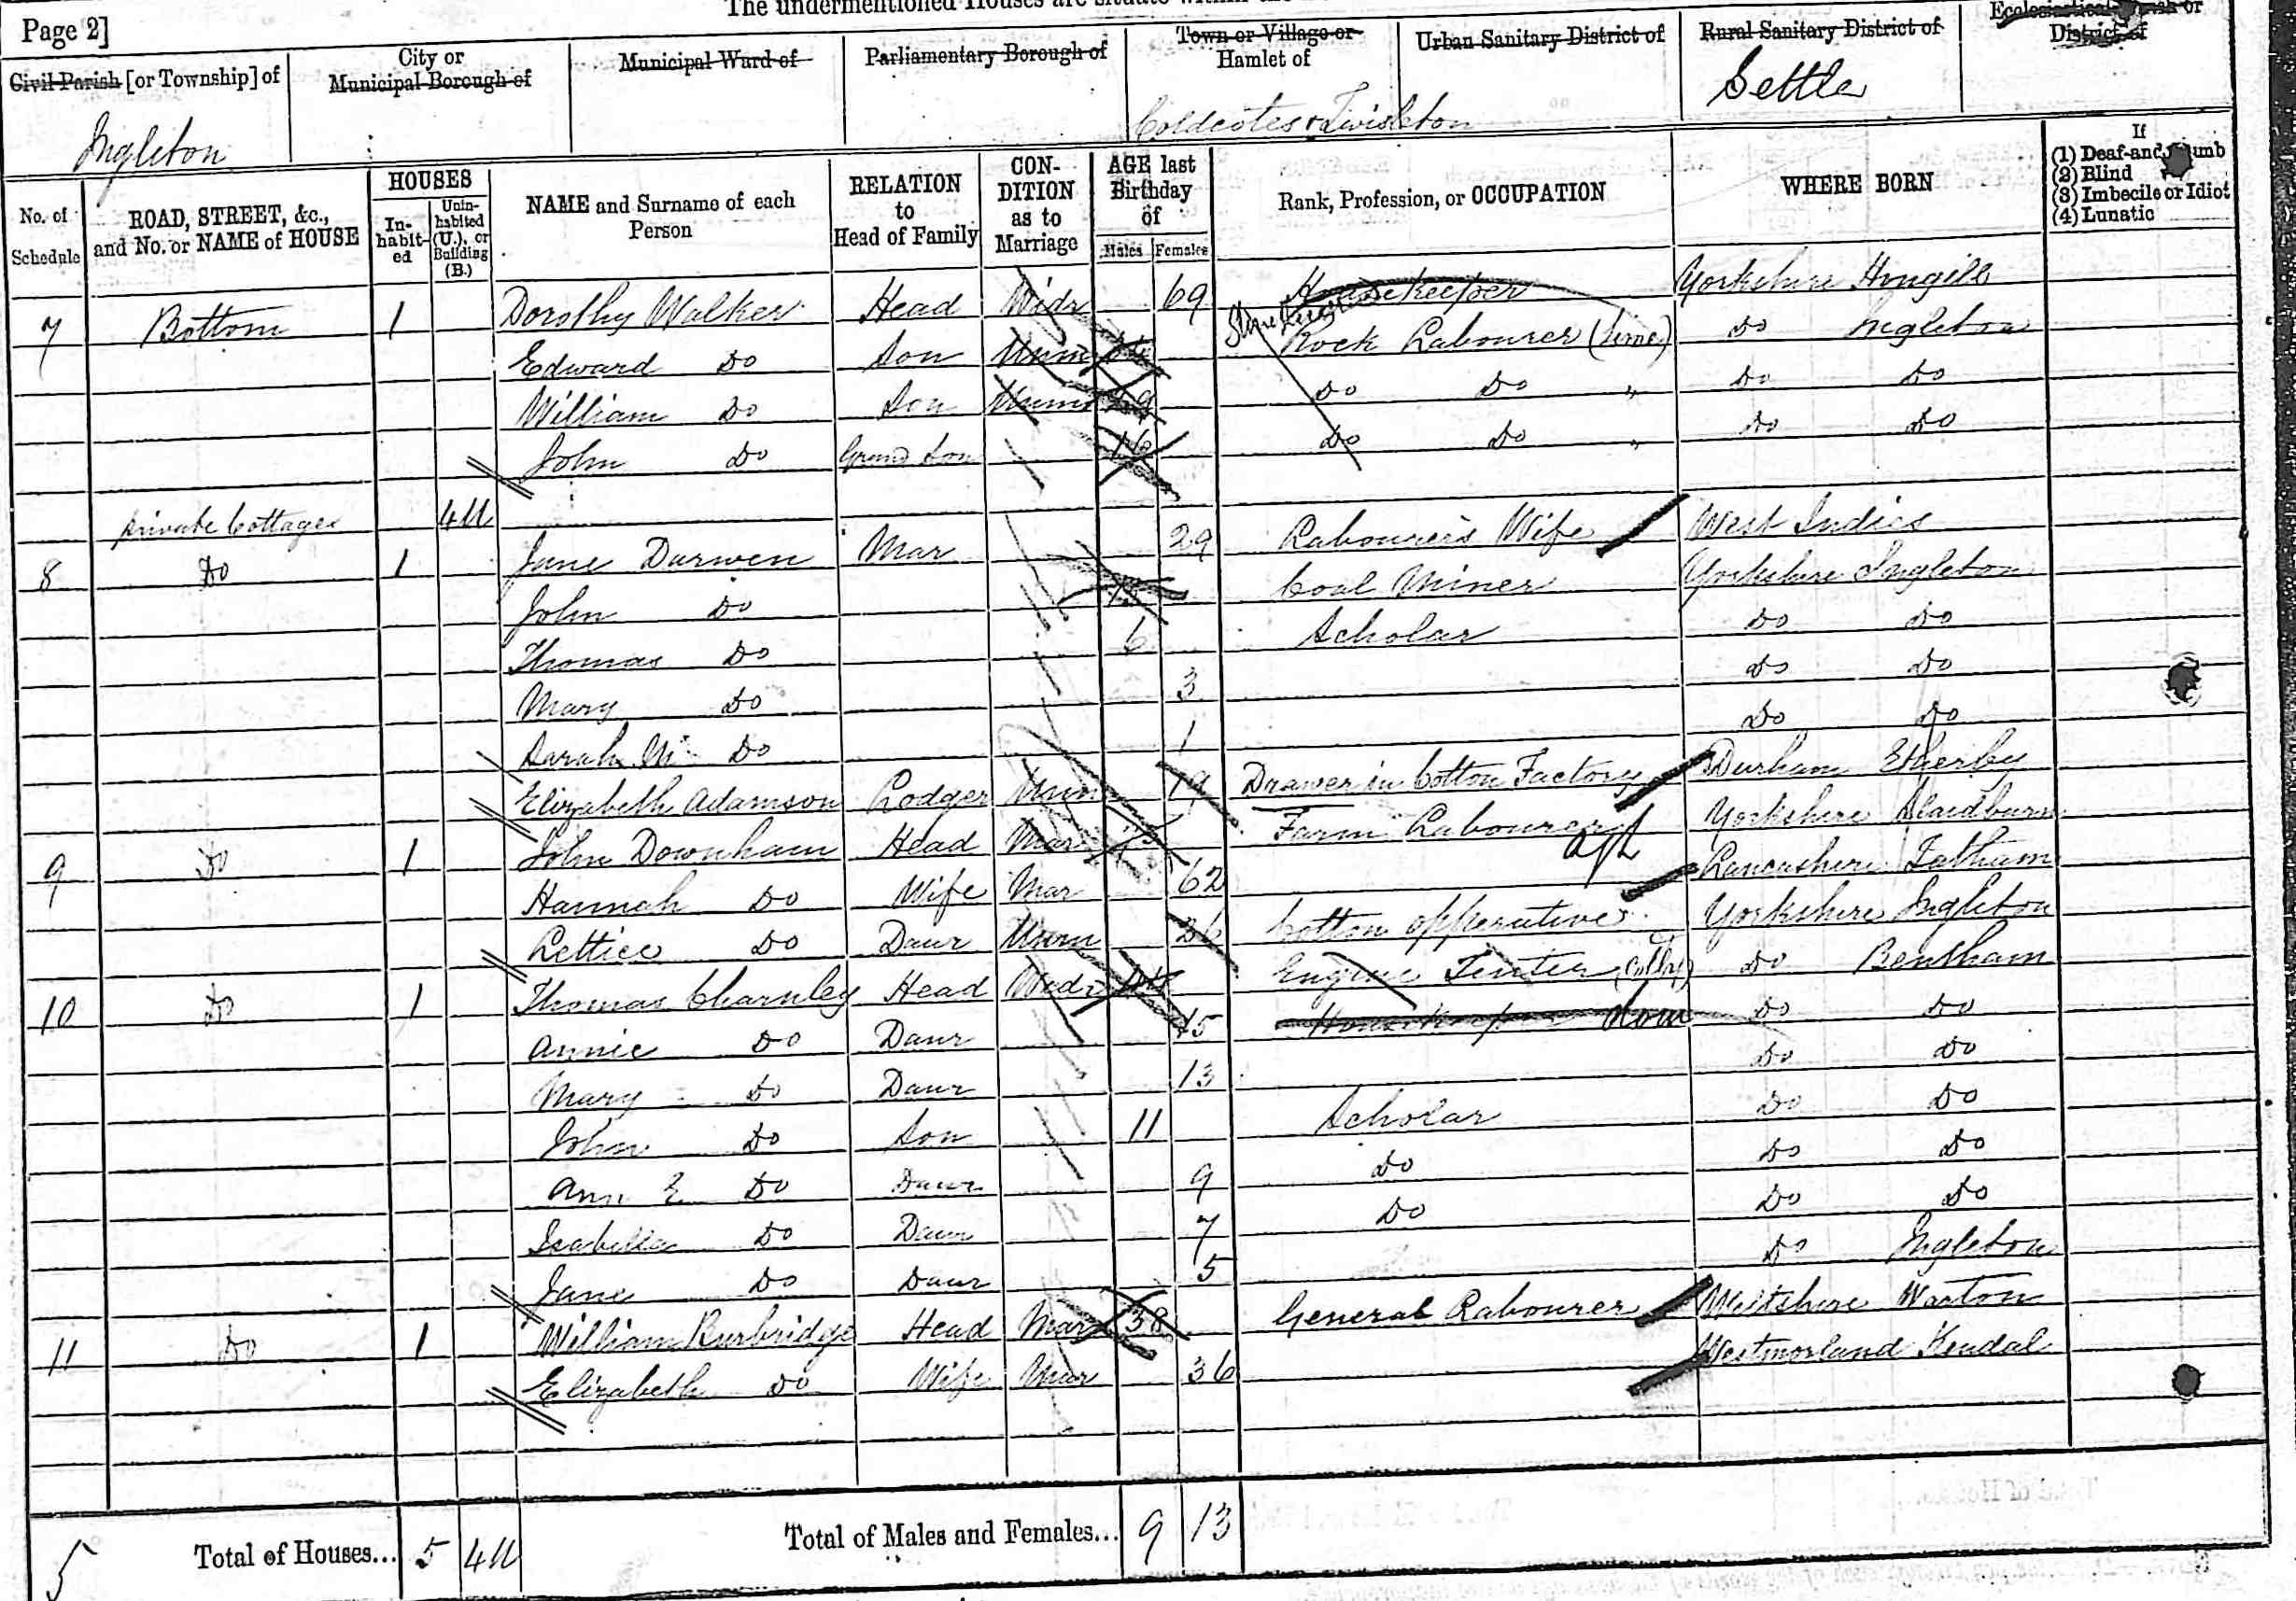 The undermentioned Houses are situate within the
Page 2]
Civil Parish [or Township] of
City or Municipal Borough of
Municipal Ward of
Parliamentary Borough of
Town or Village or Hamlet of
Urban Sanitary District of
Rural Sanitary District of
Ecclesiastical Parish or District of
Ingleton
Coldcotes & Twisleton
Settle
No. of Schedule
ROAD, STREET, &c., and No. or NAME of HOUSE
HOUSES
In-habit-ed
Unin-habited (U.), or Building (B.)
NAME and Surname of each Person
RELATION to Head of Family
CON-DITION as to Marriage
AGE last Birthday of
Males
Females
Rank, Profession, or OCCUPATION
WHERE BORN
If
(1) Deaf-and-Dumb
(2) Blind
(3) Imbecile or Idiot
(4) Lunatic
7 Bottom 1 Dorothy Walker Head Widr 69 Housekeeper Yorkshire
Edward Do Son Unm Rock Labourer (Lime) Do Ingleton
William Do Son Unm Do Do " Do Do
John Do Grand Son 16 Do Do " Do Do
Private Cottages 4U
8 Do 1 Jane Darwen Mar 29 Labourers Wife West Indies
John Do Coal Miner Yorkshire Ingleton
Thomas Do 6 Scholar Do Do
Mary Do 3 Do Do
Sarah M Do 1 Do Do
Elizabeth Adamson Lodger Unm 19 Drawer in Cotton Factory Durham Etherley
9 Do 1 John Downham Head Mar Farm Labourer Yorkshire Slaidburn
Hannah Do Wife Mar 62 Lancashire Tatham
Lettice Do Daur Unm 26 Cotton opperative Yorkshire Ingleton
10 Do 1 Thomas Charnley Head Widr Engine Tenter Do Bentham
Annie Do Daur 15 Housekeeper Dom Do Do
Mary Do Daur 13 Do Do
John Do Son 11 Scholar Do Do
Ann E Do Daur 9 Do Do Do
Isabella Do Daur 7 Do Do Do
Jane Do Daur 5 Do Ingleton
11 Do 1 William Burbridge Head Mar 38 General Labourer Wiltshire Warton
Elizabeth Do Wife Mar 36 Westmorland Kendal
5 Total of Houses... 5 4U Total of Males and Females... 9 13